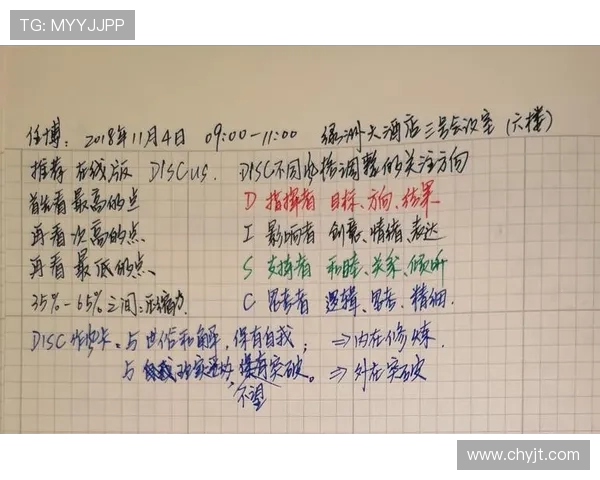 TG: MYYJJPP
任博: 2018年11月4日 09:00-11:00 绿洲大酒店三号会议室(六楼)
推荐在线版 DISCus. DISC不同风格调整的关注方向
首先看最高的点 D 指挥者 目标、方向、结果
再看次高的点 I 影响者 创意、情绪、表达
再看最低的点 S 支持者 和睦、关系、倾听
35%-65%之间: C 思考者 逻辑、思考、精细.
DISC 与世俗和解,保有自我; ⇒内在修炼.
与 突破。⇒外在突破
不望
www.chyjt.com